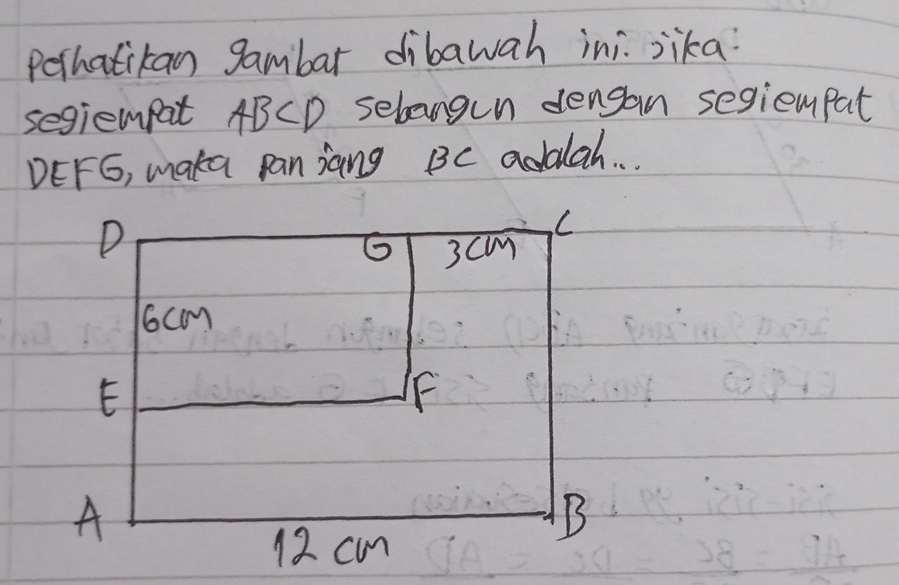 Perhatikan gambar dibawah ini. jika
segiempat ABCD sebangun dengan segiempat
DEFG, maka panjang BC adalah...
D G 3cm C
6cm
E F
A B
12 cm